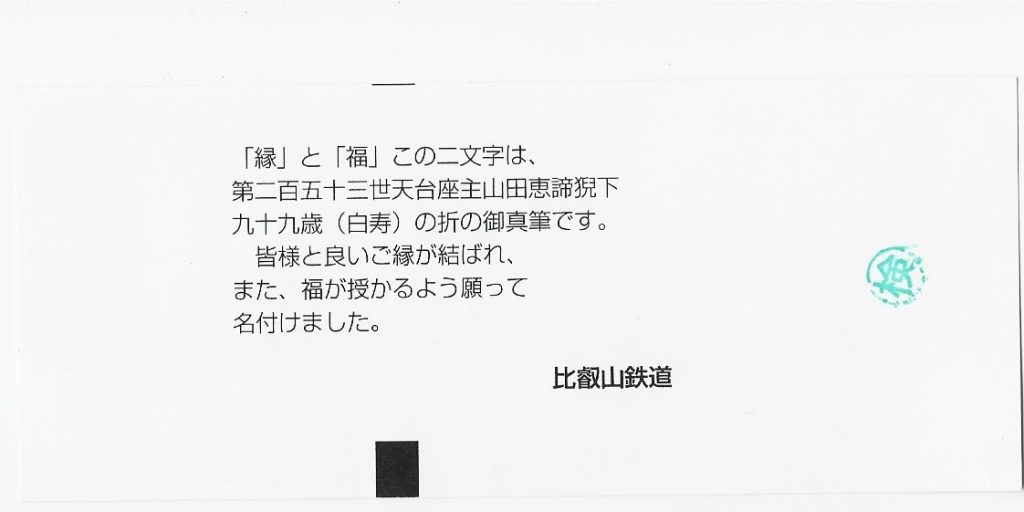 「縁」と「福」この二文字は、
第二百五十三世天台座主山田恵諦猊下
九十九歳（白寿）の折の御真筆です。
　皆様と良いご縁が結ばれ、
また、福が授かるよう願って
名付けました。
比叡山鉄道
検